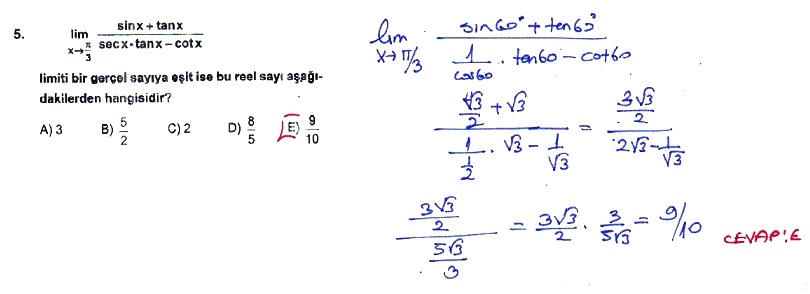 5. lim x→π/3 (sinx + tanx)/(secx·tanx – cotx)
limiti bir gerçel sayıya eşit ise bu reel sayı aşağı-
dakilerden hangisidir?
A) 3 B) 5/2 C) 2 D) 8/5 E) 9/10
lim x→π/3 (sin60° + tan60°)/(1/cos60 · tan60 – cot60)
(√3/2 + √3)/(1/(1/2) · √3 – 1/√3) = (3√3/2)/(2√3 – 1/√3)
(3√3/2)/(5√3/3) = 3√3/2 · 3/5√3 = 9/10
CEVAP: E